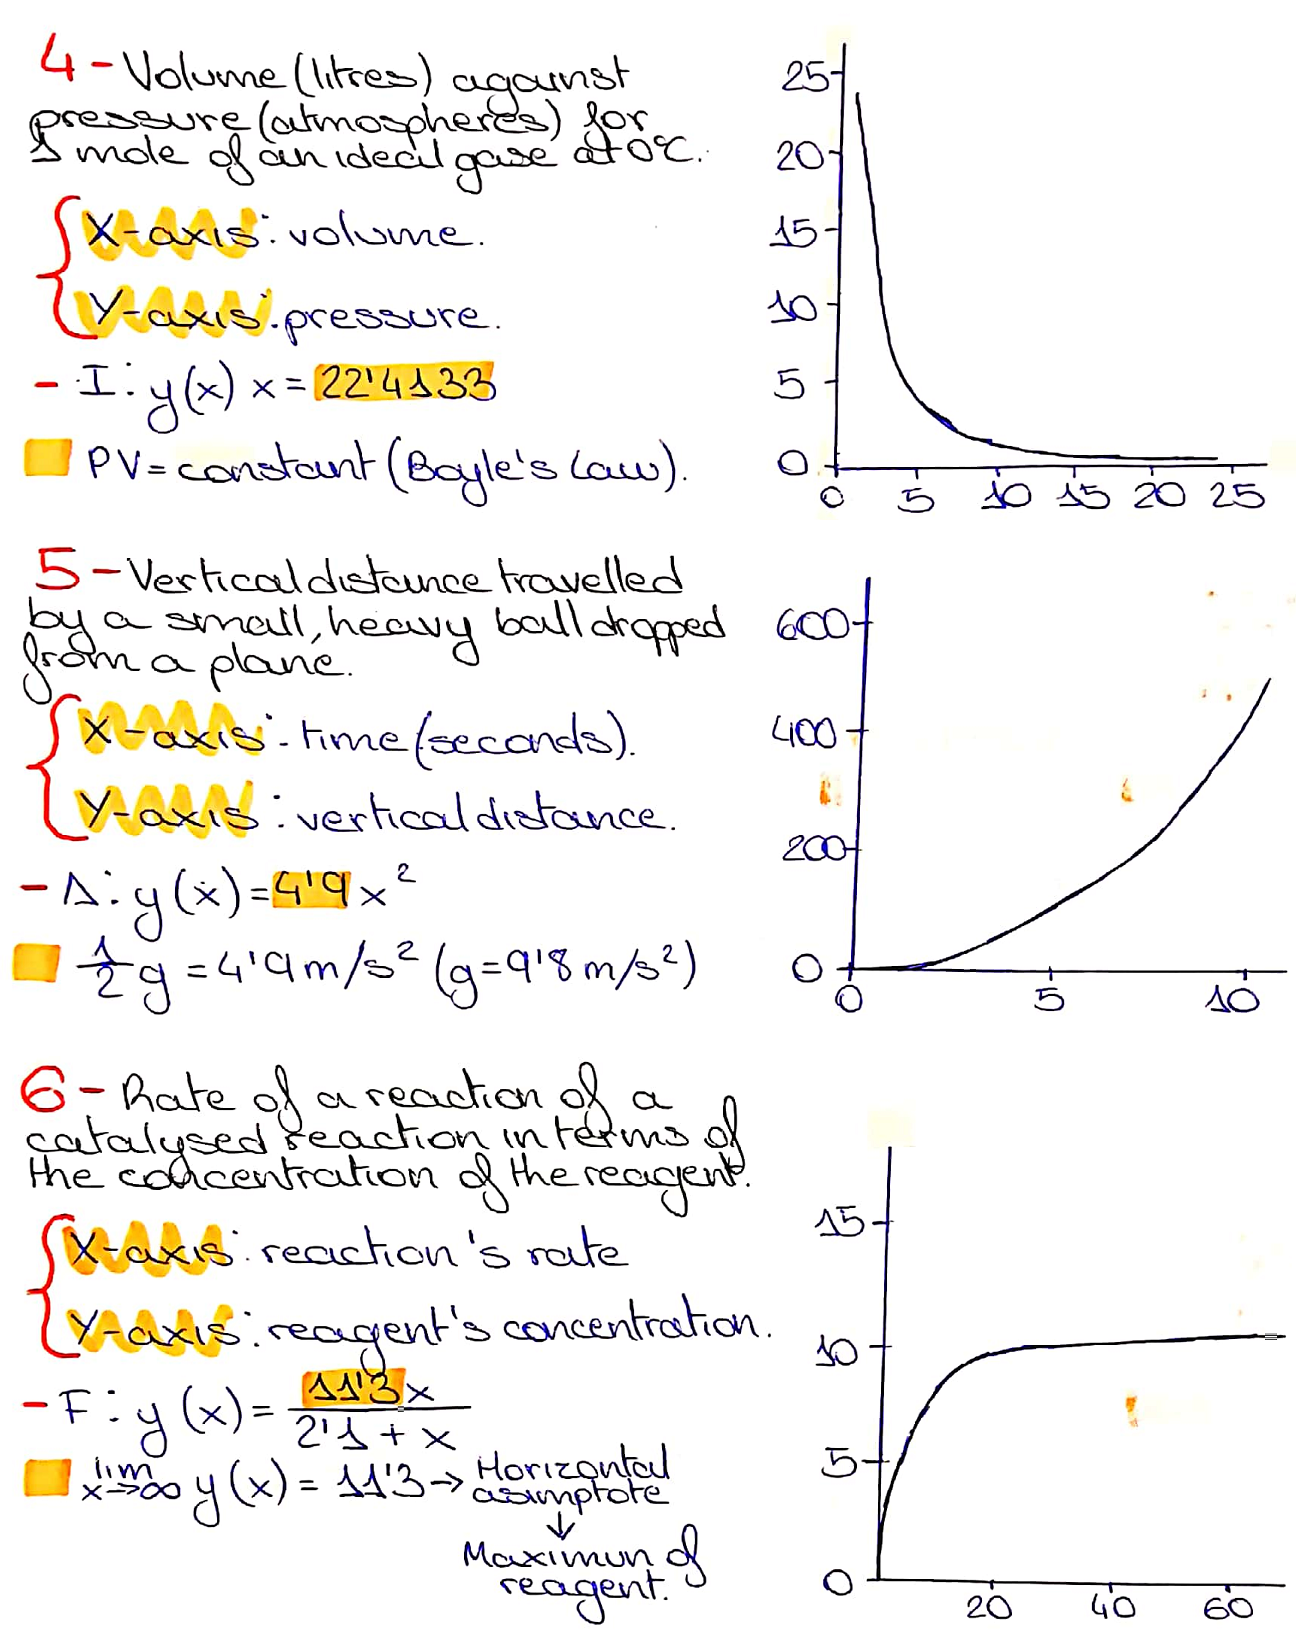 4 - Volume (litres) against
pressure (atmospheres) for
1 mole of an ideal gase at 0°C.
X-axis: volume.
Y-axis: pressure.
- I: y(x) x = 22'4133
PV = constant (Boyle's Law).
25
20
15
10
5
0
0 5 10 15 20 25
5 - Vertical distance travelled
by a small, heavy ball dropped
from a plane.
X-axis: time (seconds).
Y-axis: vertical distance.
- A: y(x) = 4'9 x²
1/2 g = 4'9 m/s² (g = 9'8 m/s²)
600
400
200
0
0 5 10
6 - Rate of a reaction of a
catalysed reaction in terms of
the concentration of the reagent.
X-axis: reaction's rate
Y-axis: reagent's concentration.
- F: y(x) = 11'3x / 2'1 + x
lim x→∞ y(x) = 11'3 → Horizontal
asimptote
↓
Maximun of
reagent.
15
10
5
0
20 40 60